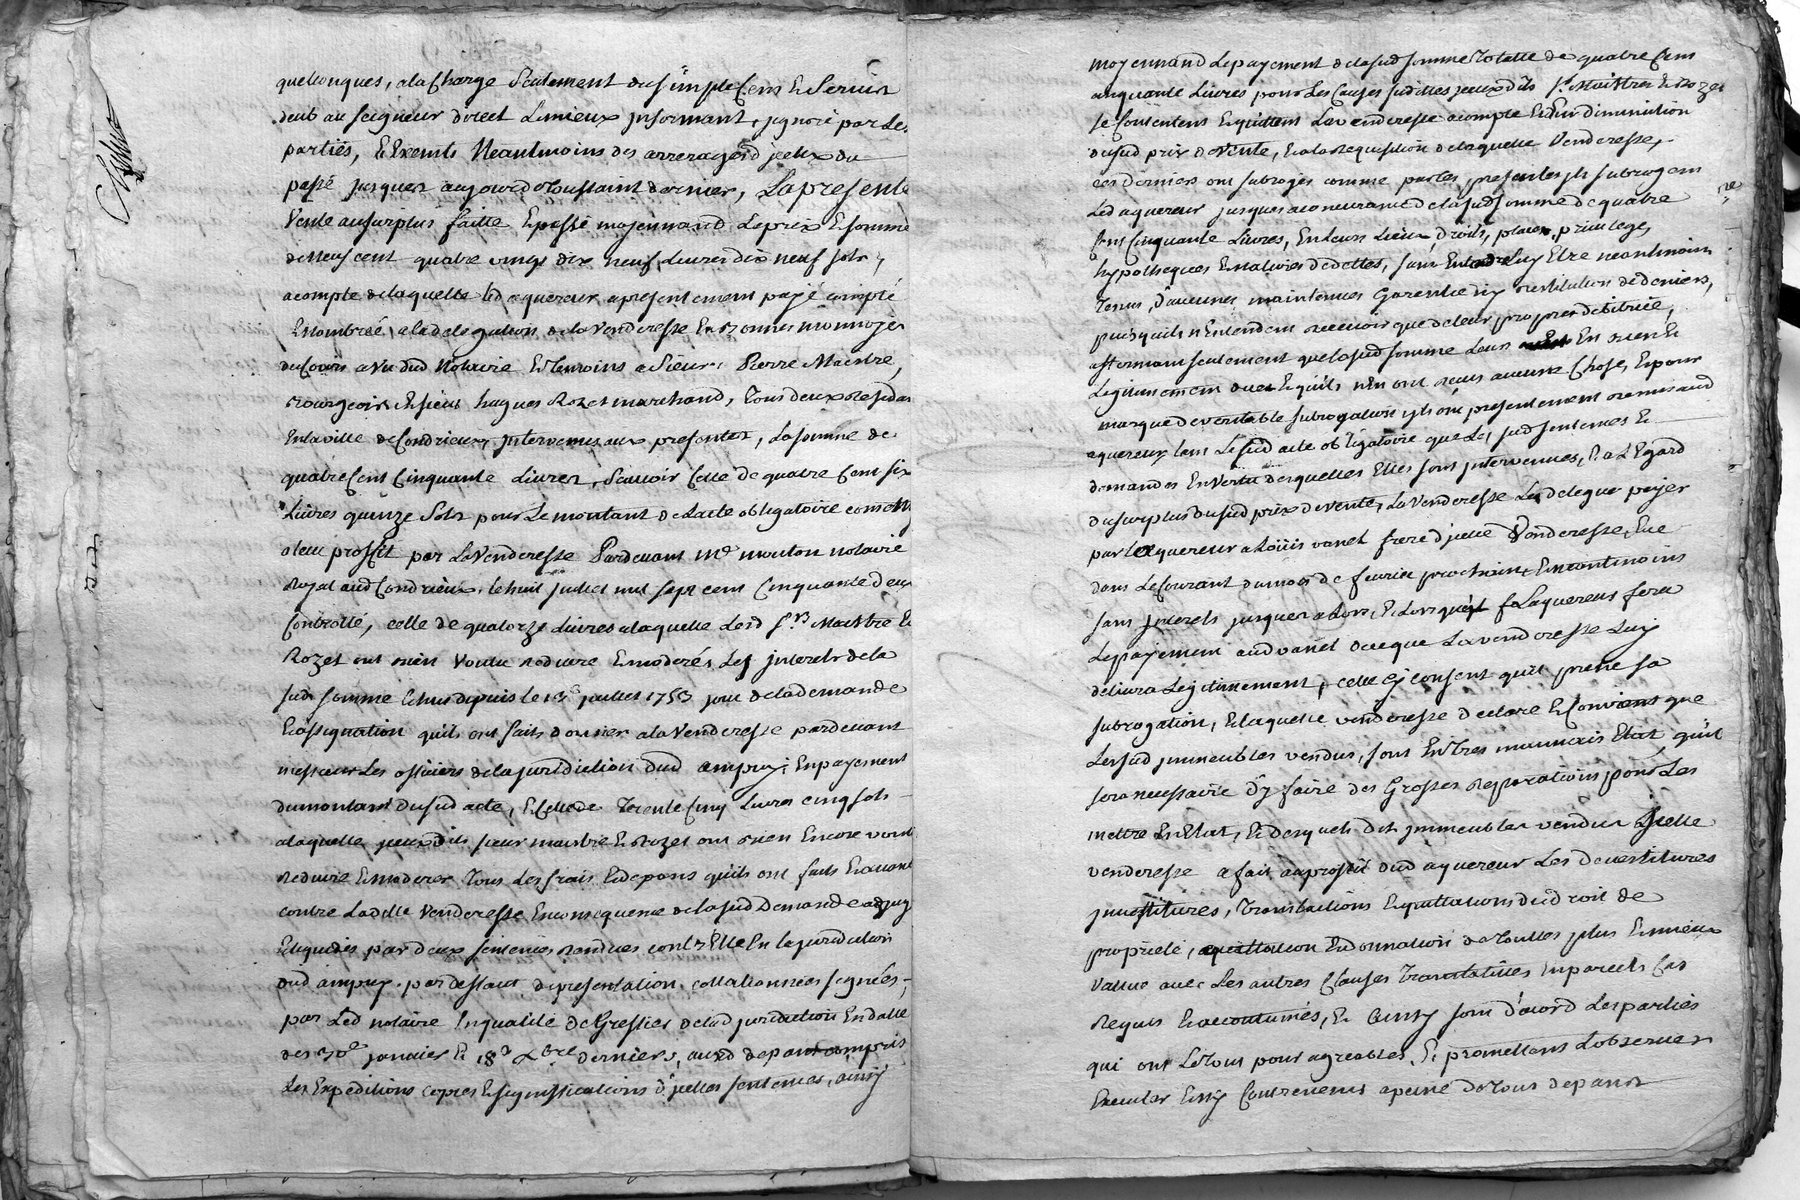 quelconques, ala Charge Seulement du simple Cens E Servis
deub au seigneur direct Lemieux informant, ignoré par Les
partiës, E Exempts Neantmoins des arrerages d'jceux du
passé jusques aujour d toussaint dernier, La presente
Vente au surplus faitte E passé moyennand Le prix E somme
de Neuf cent quatre vingt dix neuf Livres dix neuf sols,
acompte de laquelle led aquereur a presentement payé compté
E Nombreé, ala delegation de la venderesse En bonnes monnoyes
du Cours a Vu dud Notaire E temoins a Sieurs Pierre Maistre
Bourgeois, E sieur hugues Rozet marchand, tous deux residans
En la ville de Condrieux, jntervenus aux presentes, La somme de
quatre Cent Cinquante Livres, Scauoir Celle de quatre Cent six
Livres quinze Sols pour Le montant de Lacte obligatoire
a leur proffit par La Venderesse Pardeuant me mouton notaire
Royal aud Condrieux, le huit juillet mil sept cent Cinquante deux
Controllé, celle de quatorze Livres alaquelle Lesd srs Maistre E
Rozet ont bien Voulu reduire E moderés Les jnterets de la
sud somme Echus depuis le juillet 1753 jour de la demande
E assignation qu'ils ont faits donner ala Venderesse pardeuant
messieurs Les officiers de la jurediction dud ampuy; En payement
du montant dusud acte, E Celle de trente Cinq Livres cinq sols
alaquelle jceux dits sieurs maistre E Rozet ont bien Encore voulu
reduire E moderer tous Les frais E depans qu'ils ont faits E auancé
contre Ladelle Venderesse En consequence de la sud Demande adjugé
E liquidés par deux sentences rendues contr'Elle En la jurediction
dud ampuy, par deffaut de presentation collationneés signeés,
par Led notaire En qualité de Greffier de lad jurediction En datte
des janvier E 18e xbre derniers, aux d depans compris
Les Expeditions copies E significations d'jcelles sentences, ainsy
moyennand Le payement de la sud somme totalle de quatre Cent
cinquante Livres pour Les Causes sud ittes jceux dits srs Maistre E Rozet
se Contentent E quittent La venderesse acompte E En diminution
dusud prix de Vente, E ala Requisition de laquelle Venderesse,
ces derniers ont subrogés comme par les presentes jls subrogent
Led aquereur jusques a concurrance de la sud somme de quatre
Cent Cinquante Livres, En leurs Lieux Droits, places, priuilege,
hypotheques E natures de dettes, sans Luy Etre neantmoins
tenus, d'aucunes maintenues Garentie ny restitution de deniers,
puisqu'ils n'Entendent receuoir que de leur propre debitrice,
affirmant seulement que la sud somme Leur Est bien E
Legitimement due E qu'ils n'en ont receus aucune Chose, E pour
marque de veritable subrogation jls ont presentement remis aud
aquereur tant Le sud acte obligatoire que Les sud sentences E
demandes En Vertu desquelles Elles sont jntervenues, E a L'Egard
du surplus dusud prix de vente, La Venderesse Le delegue payer
par L'aquereur a Loüis vanel frere d'jcelle Venderesse, E ce
dans Le Courant du mois de feurier prochain, E neantmoins
sans jnterets jusques alors, E Lorsque L'aquereur fera
Le payement aud vanel deceque La venderesse Luy
deliura Legitimement, celle cy consent qu'il prene sa
subrogation, E laquelle venderesse declare E Conviens que
Les sud jmmeubles vendus, sont En tres mauuais Etat, qu'il
sera necessaire d'y faire des Grosses reparations pour Les
mettre En Etat, E desquels dits jmmeubles vendus jcelle
venderesse a fait au proffit dud aquereur Les devestitures
jnvestitures, translations E quittations dud droit de
proprieté, E donnation de toutes plus E mieux
Value auec Les autres Clauses translatiues En pareils Cas
Requis E accoutumés, E ainsy sont d'acord Les parties
qui ont Le tout pour agreables, E promettent L'obseruer
Executer E n'y Contreuenir a peine de tous depans